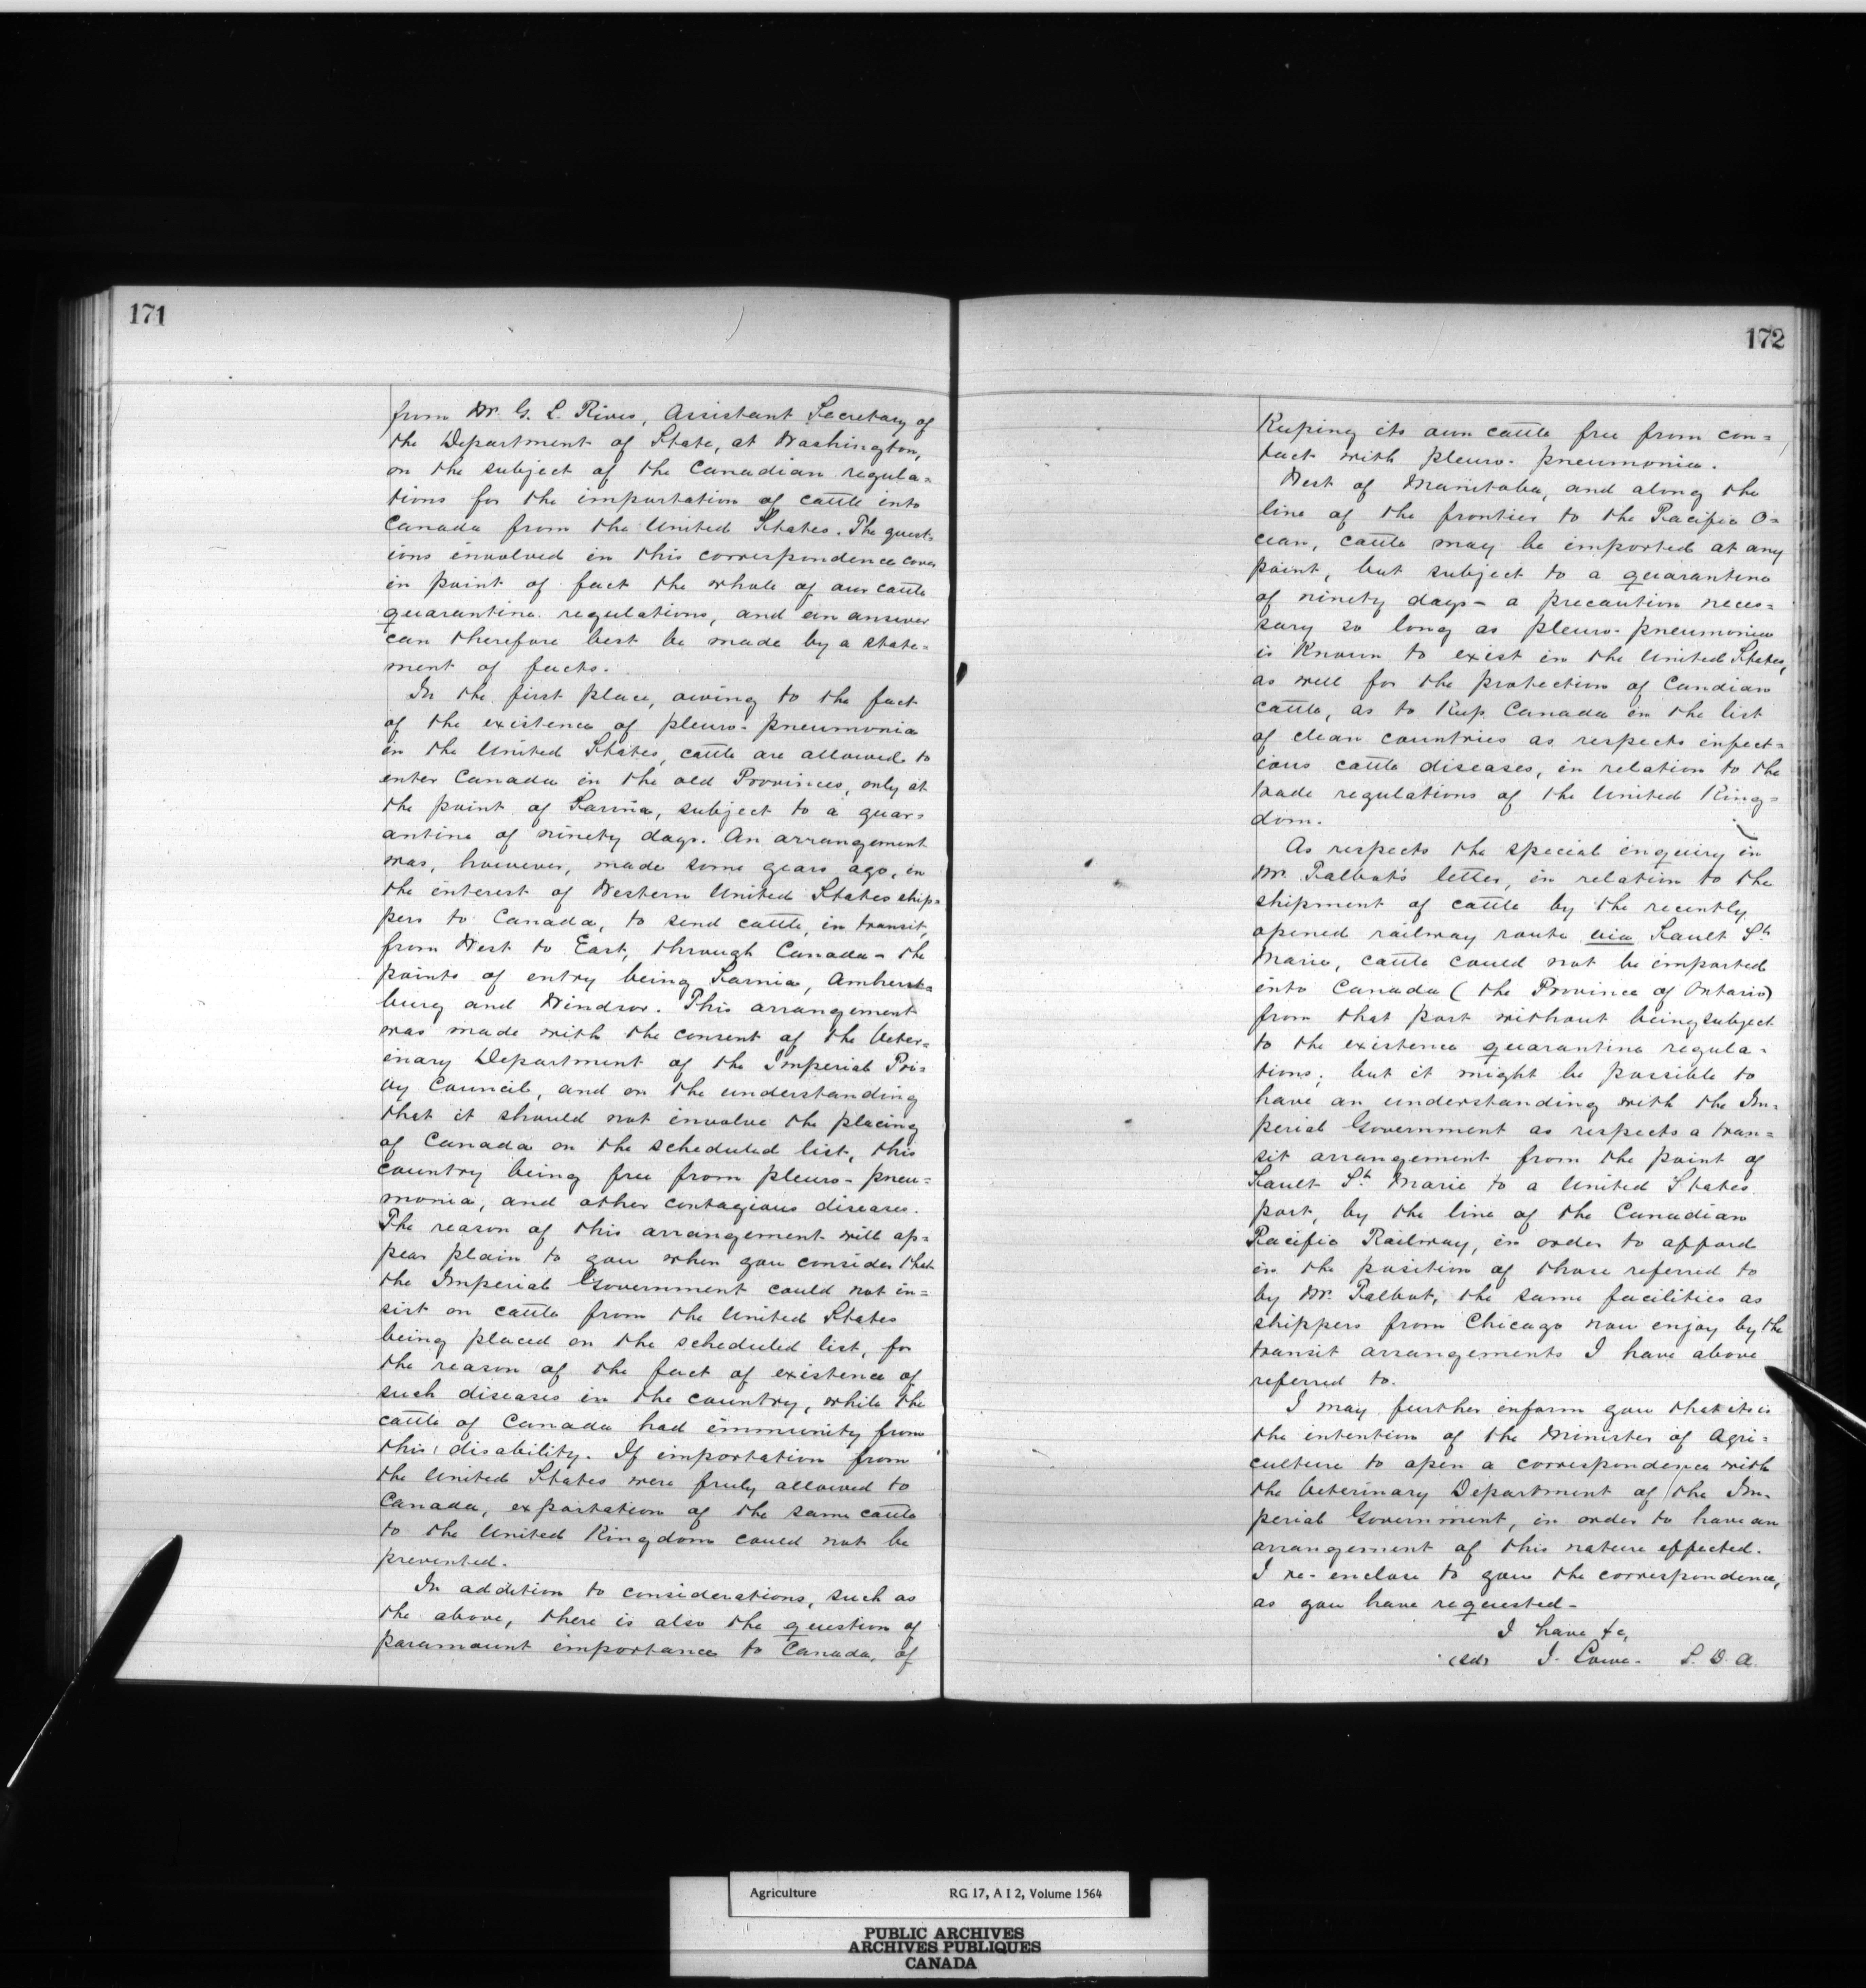 171
from Mr. G. L. Rives, Assistant Secretary of
the Department of State, at Washington,
on the subject of the Canadian regula=
tions for the importation of cattle into
Canada from the United States. The quest=
ions involved in this correspondence cover
in point of fact the whole of our cattle
quarantine regulations, and an answer
can therefore best be made by a state=
ment of facts.
In the first place, owing to the fact
of the existence of pleuro-pneumonia
in the United States, cattle are allowed to
enter Canada in the old Provinces, only at
the point of Sarnia, subject to a quar=
antine of ninety days. An arrangement
was, however, made some years ago, in
the interest of Western United States ship=
pers to Canada, to send cattle, in transit,
from West to East, through Canada - the
points of entry being Sarnia, Amherst=
burg and Windsor. This arrangement
was made with the consent of the Veter=
inary Department of the Imperial Pri=
vy Council, and on the understanding
that it should not involve the placing
of Canada on the scheduled list, this
country being free from pleuro-pneu=
monia, and other contagious diseases.
The reason of this arrangement will ap=
pear plain to you when you consider that
the Imperial Government could not in=
sist on cattle from the United States
being placed on the scheduled list, for
the reason of the fact of existence of
such diseases in the country, while the
cattle of Canada had immunity from
this disability. If importation from
the United States were freely allowed to
Canada, exportation of the same cattle
to the United Kingdom could not be
prevented.
In addition to considerations, such as
the above, there is also the question of
paramount importance to Canada, of
172
Keeping its own cattle free from con=
tact with pleuro-pneumonia.
West of Manitoba, and along the
line of the frontier to the Pacific O=
cean, cattle may be imported at any
point, but subject to a quarantine
of ninety days - a precaution neces=
sary so long as pleuro-pneumonia
is Known to exist in the United States,
as well for the protection of Candian
cattle, as to Keep Canada in the list
of clean countries as respects infect=
ious cattle diseases, in relation to the
trade regulations of the United King=
dom.
As respects the special enquiry in
Mr. Talbot's letter, in relation to the
shipment of cattle by the recently
opened railway route via Sault St.
Marie, cattle could not be imported
into Canada (the Province of Ontario)
from that port without being subject
to the existence quarantine regula-
tions; but it might be possible to
have an understanding with the Im-
perial Government as respects a tran=
sit arrangement from the point of
Sault St. Marie to a United States
port, by the line of the Canadian
Pacific Railway, in order to afford
in the position of those referred to
by Mr. Talbot, the same facilities as
shippers from Chicago now enjoy by the
transit arrangements I have above
referred to.
I may further inform you that it is
the intention of the Minister of Agri=
culture to open a correspondence with
the Veterinary Department of the Im-
perial Government, in order to have an
arrangement of this nature effected.
I re-enclose to you the correspondence,
as you have requested-
I have &c,
(Sd) J. Lowe. S. D. A.
Agriculture RG 17, A I 2, Volume 1564
PUBLIC ARCHIVES
ARCHIVES PUBLIQUES
CANADA